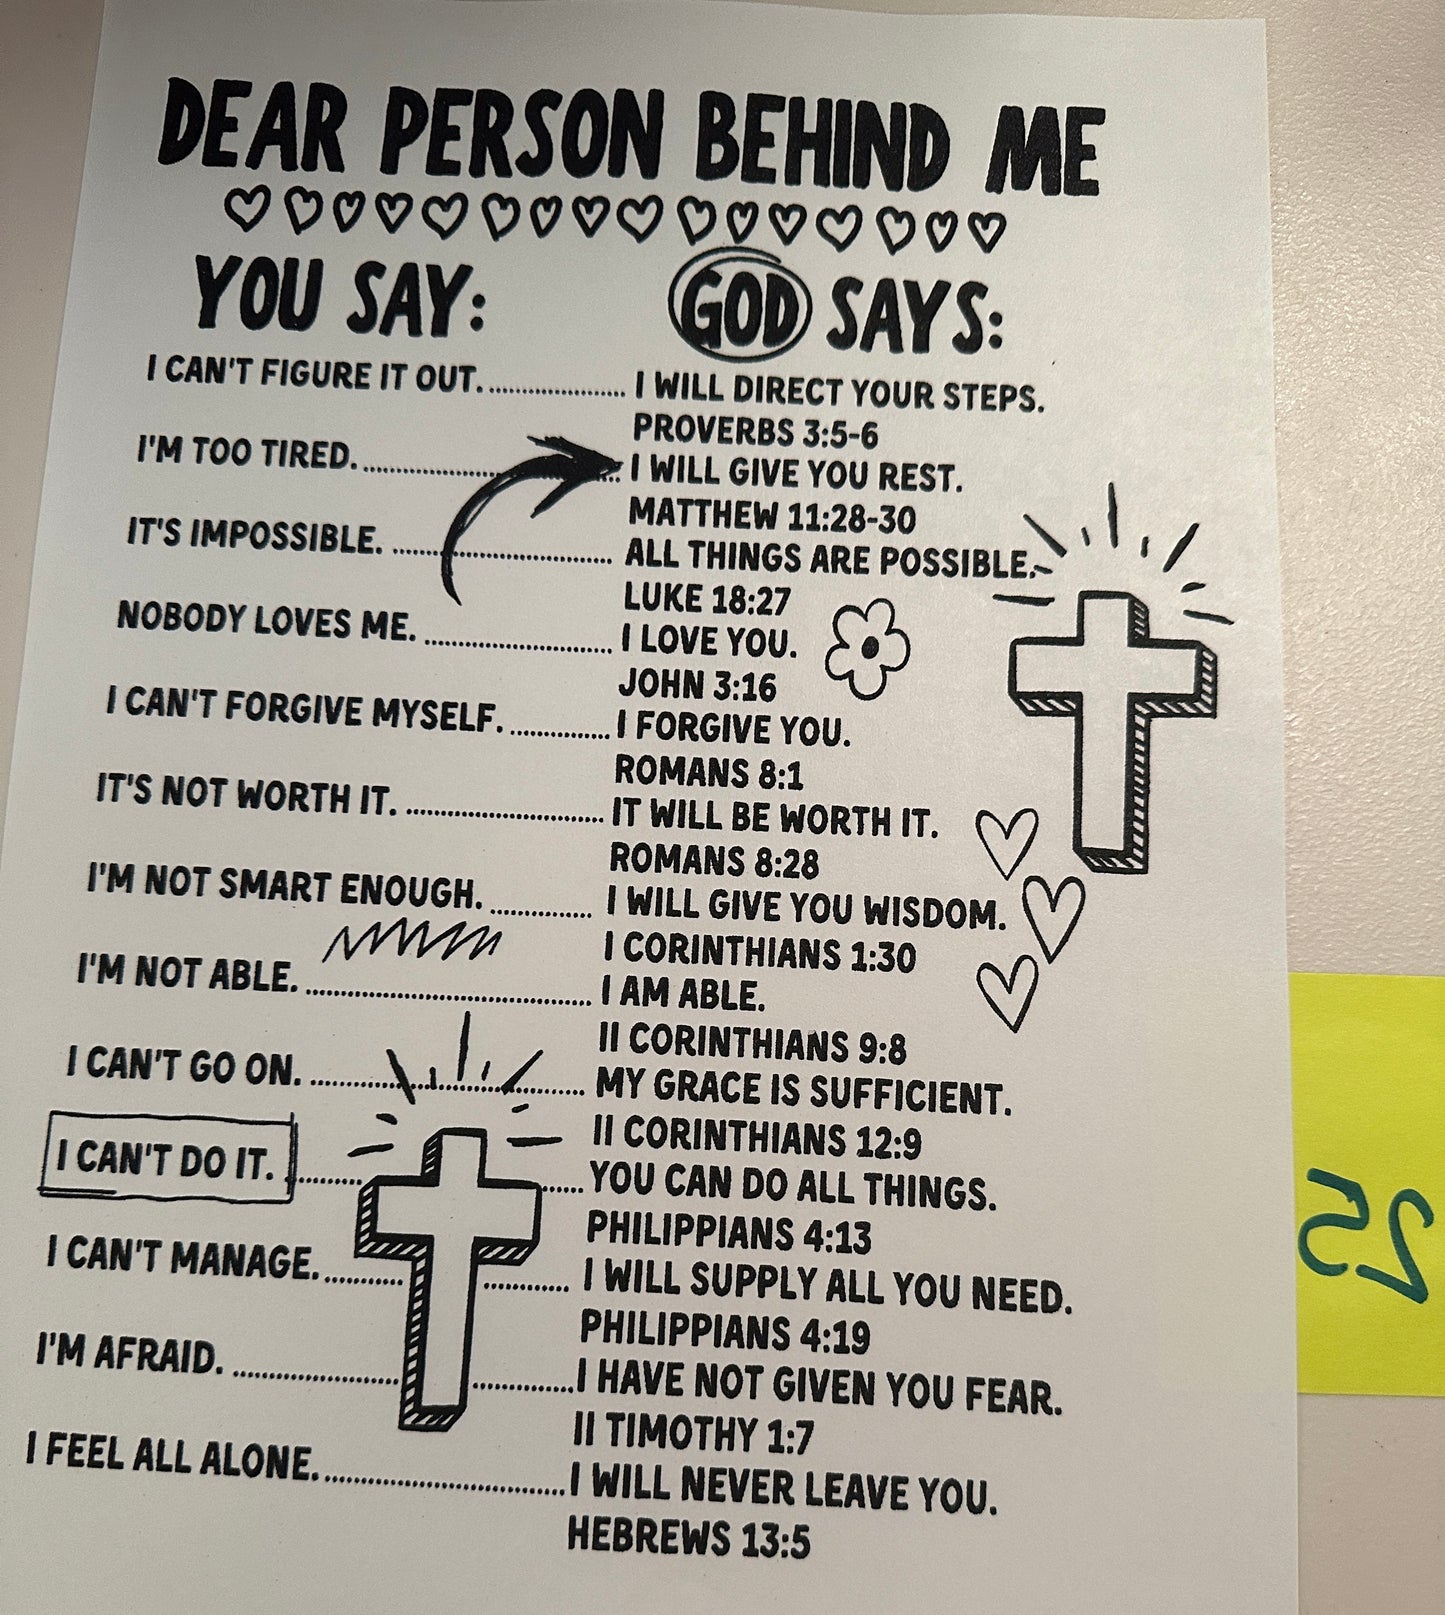 DEAR PERSON BEHIND ME
YOU SAY: GOD SAYS:
I CAN'T FIGURE IT OUT. .................... I WILL DIRECT YOUR STEPS.
PROVERBS 3:5-6
I'M TOO TIRED. .................... I WILL GIVE YOU REST.
MATTHEW 11:28-30
IT'S IMPOSSIBLE. .................... ALL THINGS ARE POSSIBLE.
LUKE 18:27
NOBODY LOVES ME. .................... I LOVE YOU.
JOHN 3:16
I CAN'T FORGIVE MYSELF. .................... I FORGIVE YOU.
ROMANS 8:1
IT'S NOT WORTH IT. .................... IT WILL BE WORTH IT.
ROMANS 8:28
I'M NOT SMART ENOUGH. .................... I WILL GIVE YOU WISDOM.
I CORINTHIANS 1:30
I'M NOT ABLE. .................... I AM ABLE.
II CORINTHIANS 9:8
I CAN'T GO ON. .................... MY GRACE IS SUFFICIENT.
II CORINTHIANS 12:9
I CAN'T DO IT. .................... YOU CAN DO ALL THINGS.
PHILIPPIANS 4:13
I CAN'T MANAGE. .................... I WILL SUPPLY ALL YOU NEED.
PHILIPPIANS 4:19
I'M AFRAID. .................... I HAVE NOT GIVEN YOU FEAR.
II TIMOTHY 1:7
I FEEL ALL ALONE. .................... I WILL NEVER LEAVE YOU.
HEBREWS 13:5
25